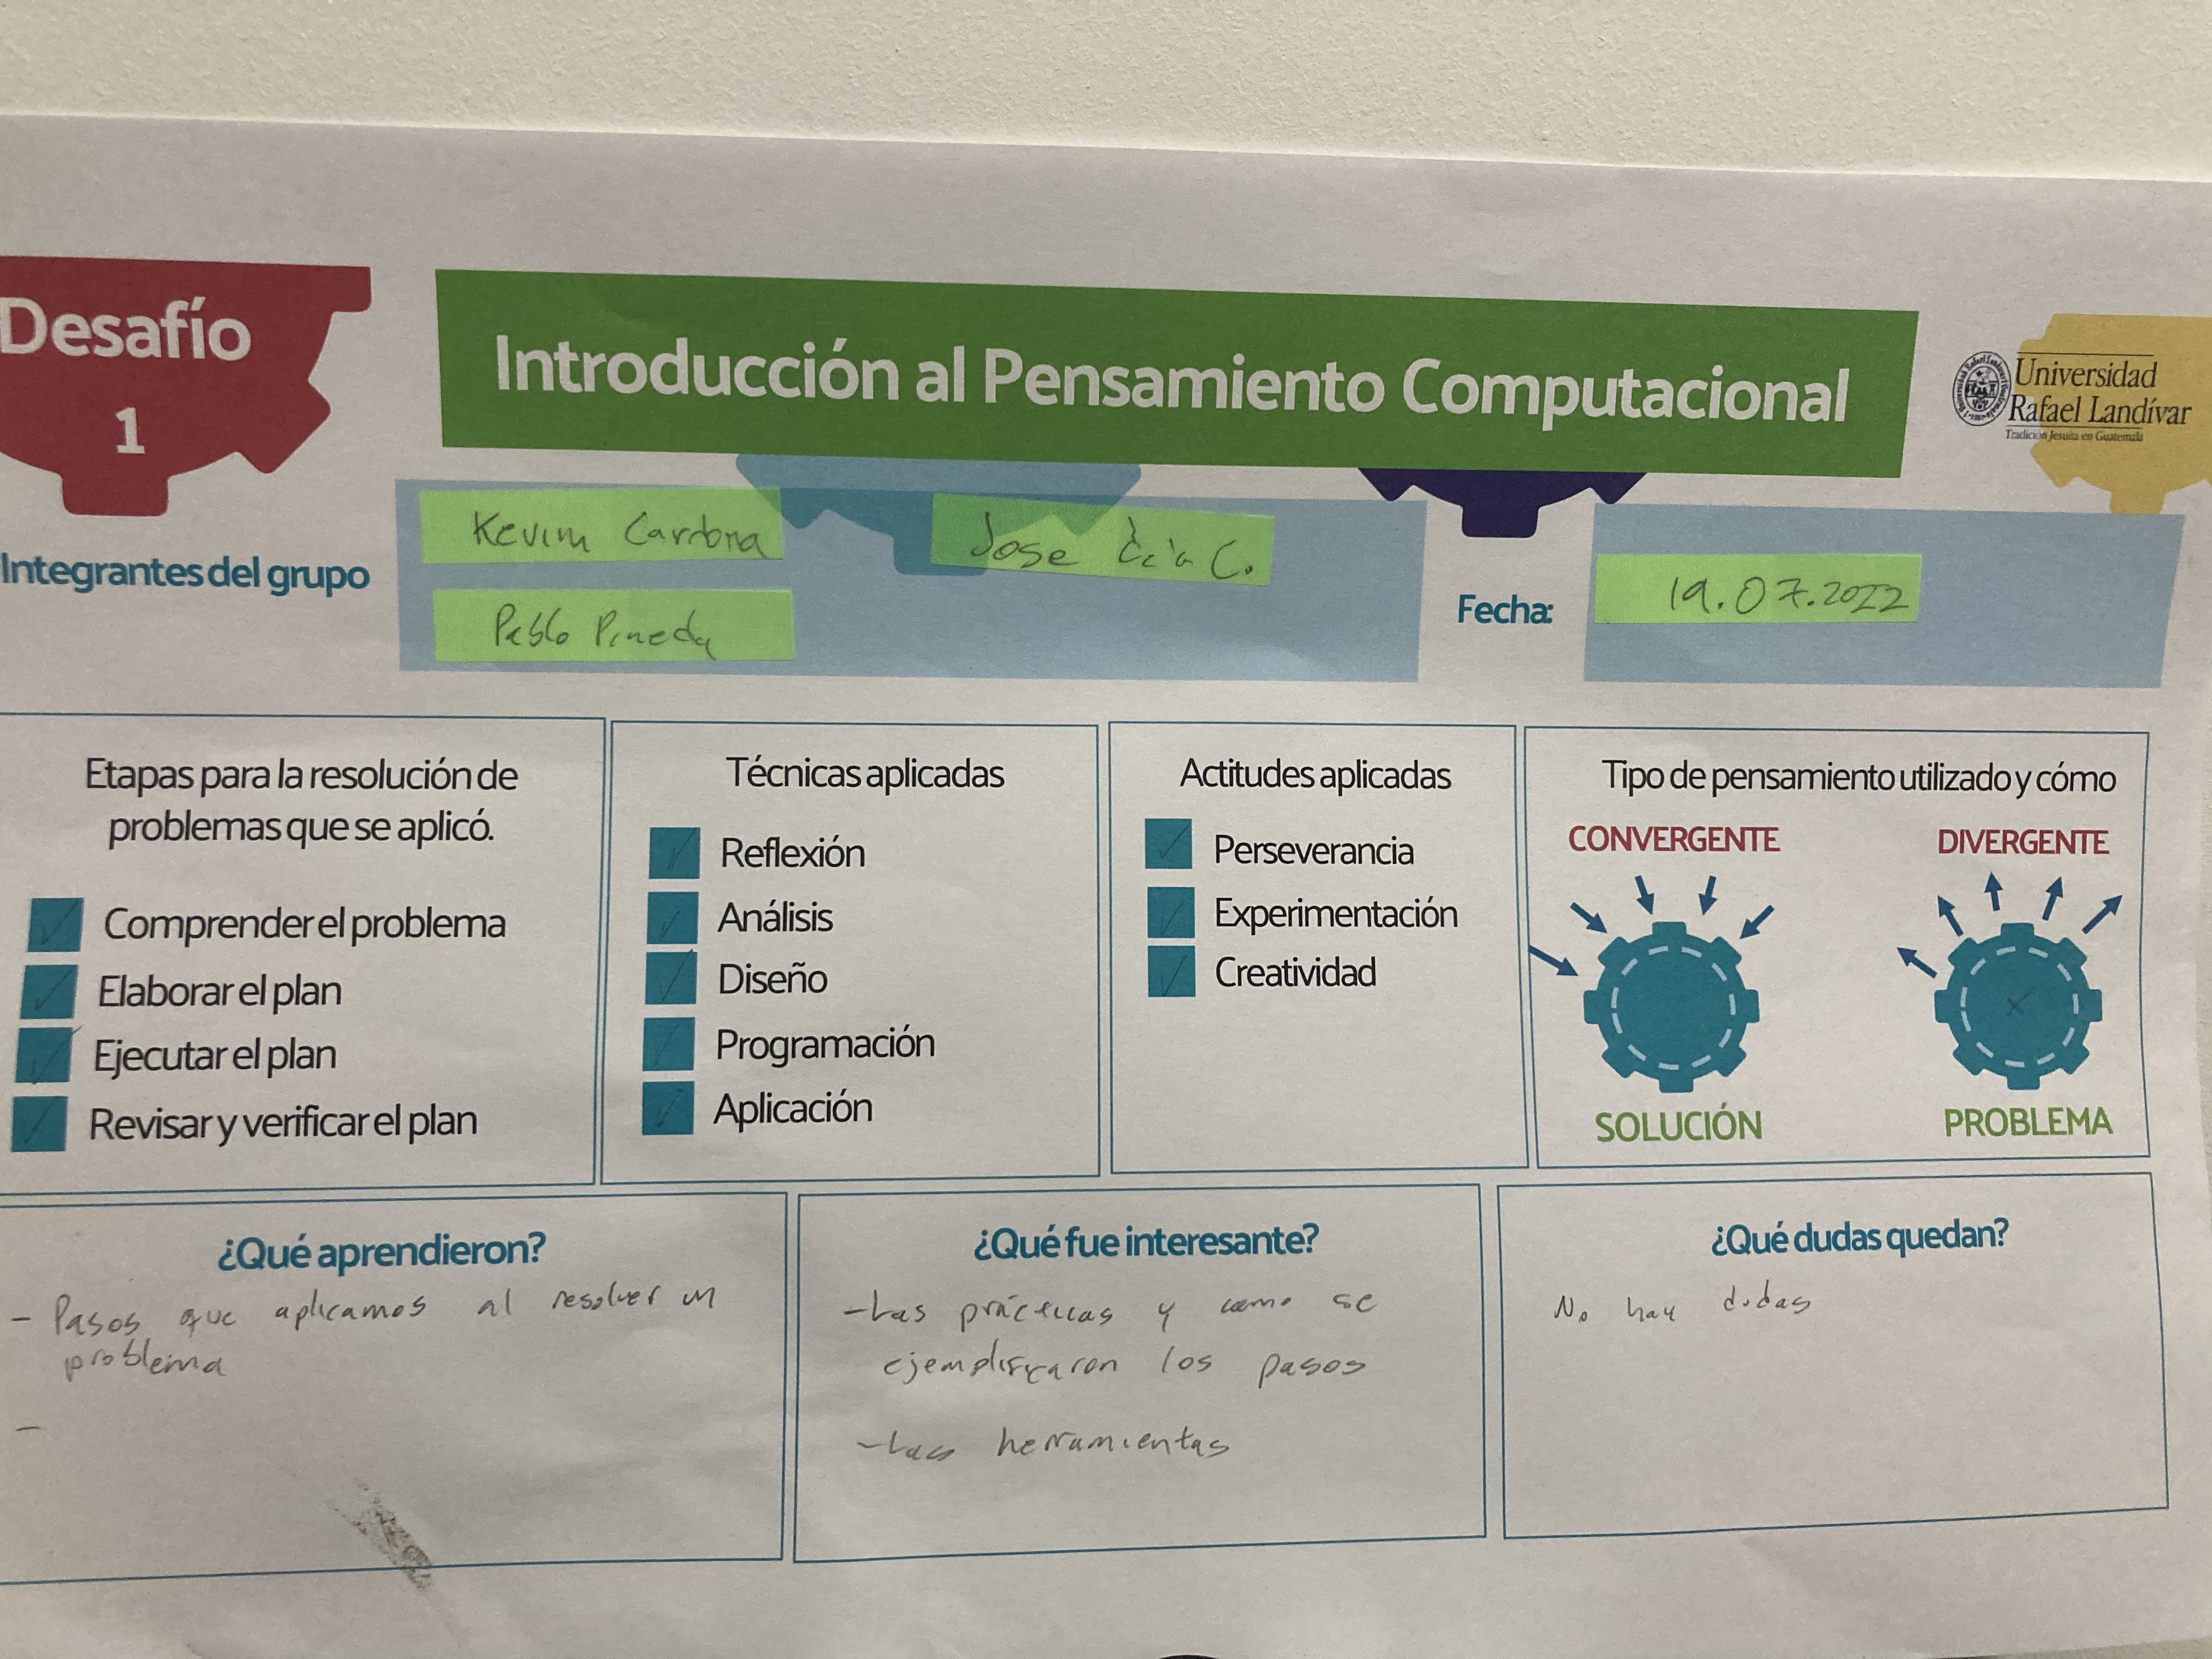 Desafío
1
Introducción al Pensamiento Computacional
Universidad
Rafael Landívar
Tradición Jesuita en Guatemala
Integrantes del grupo
Kevin Cardona
Jose C.
Pablo Pineda
Fecha:
19.07.2022
Etapas para la resolución de
problemas que se aplicó.
Comprender el problema
Elaborar el plan
Ejecutar el plan
Revisar y verificar el plan
Técnicas aplicadas
Reflexión
Análisis
Diseño
Programación
Aplicación
Actitudes aplicadas
Perseverancia
Experimentación
Creatividad
Tipo de pensamiento utilizado y cómo
CONVERGENTE
DIVERGENTE
SOLUCIÓN
PROBLEMA
¿Qué aprendieron?
- Pasos que aplicamos al resolver un
problema
-
¿Qué fue interesante?
- Las prácticas y como se
ejemplificaron los pasos
- Las herramientas
¿Qué dudas quedan?
No hay dudas